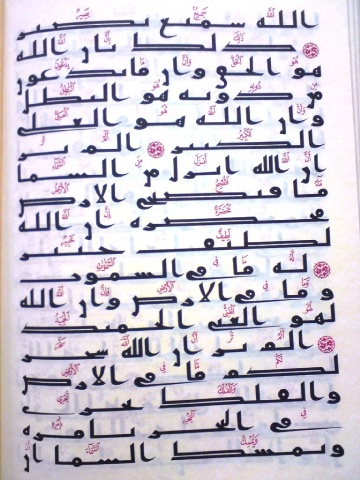 الله سميع بصير
ذلك بان الله
هو الحق وان ما يدعون
من دونه هو البطل
وان الله هو العلي
الكبير الم تر
ان الله انزل من السما
ما فتصبح الارض
مخضرة ان الله
لطيف خبير
له ما في السموت
وما في الارض وان الله
لهو الغني الحميد
الم تر ان الله سخر
لكم ما في الارض
والفلك تجري
في البحر بامره
ويمسك السما ان